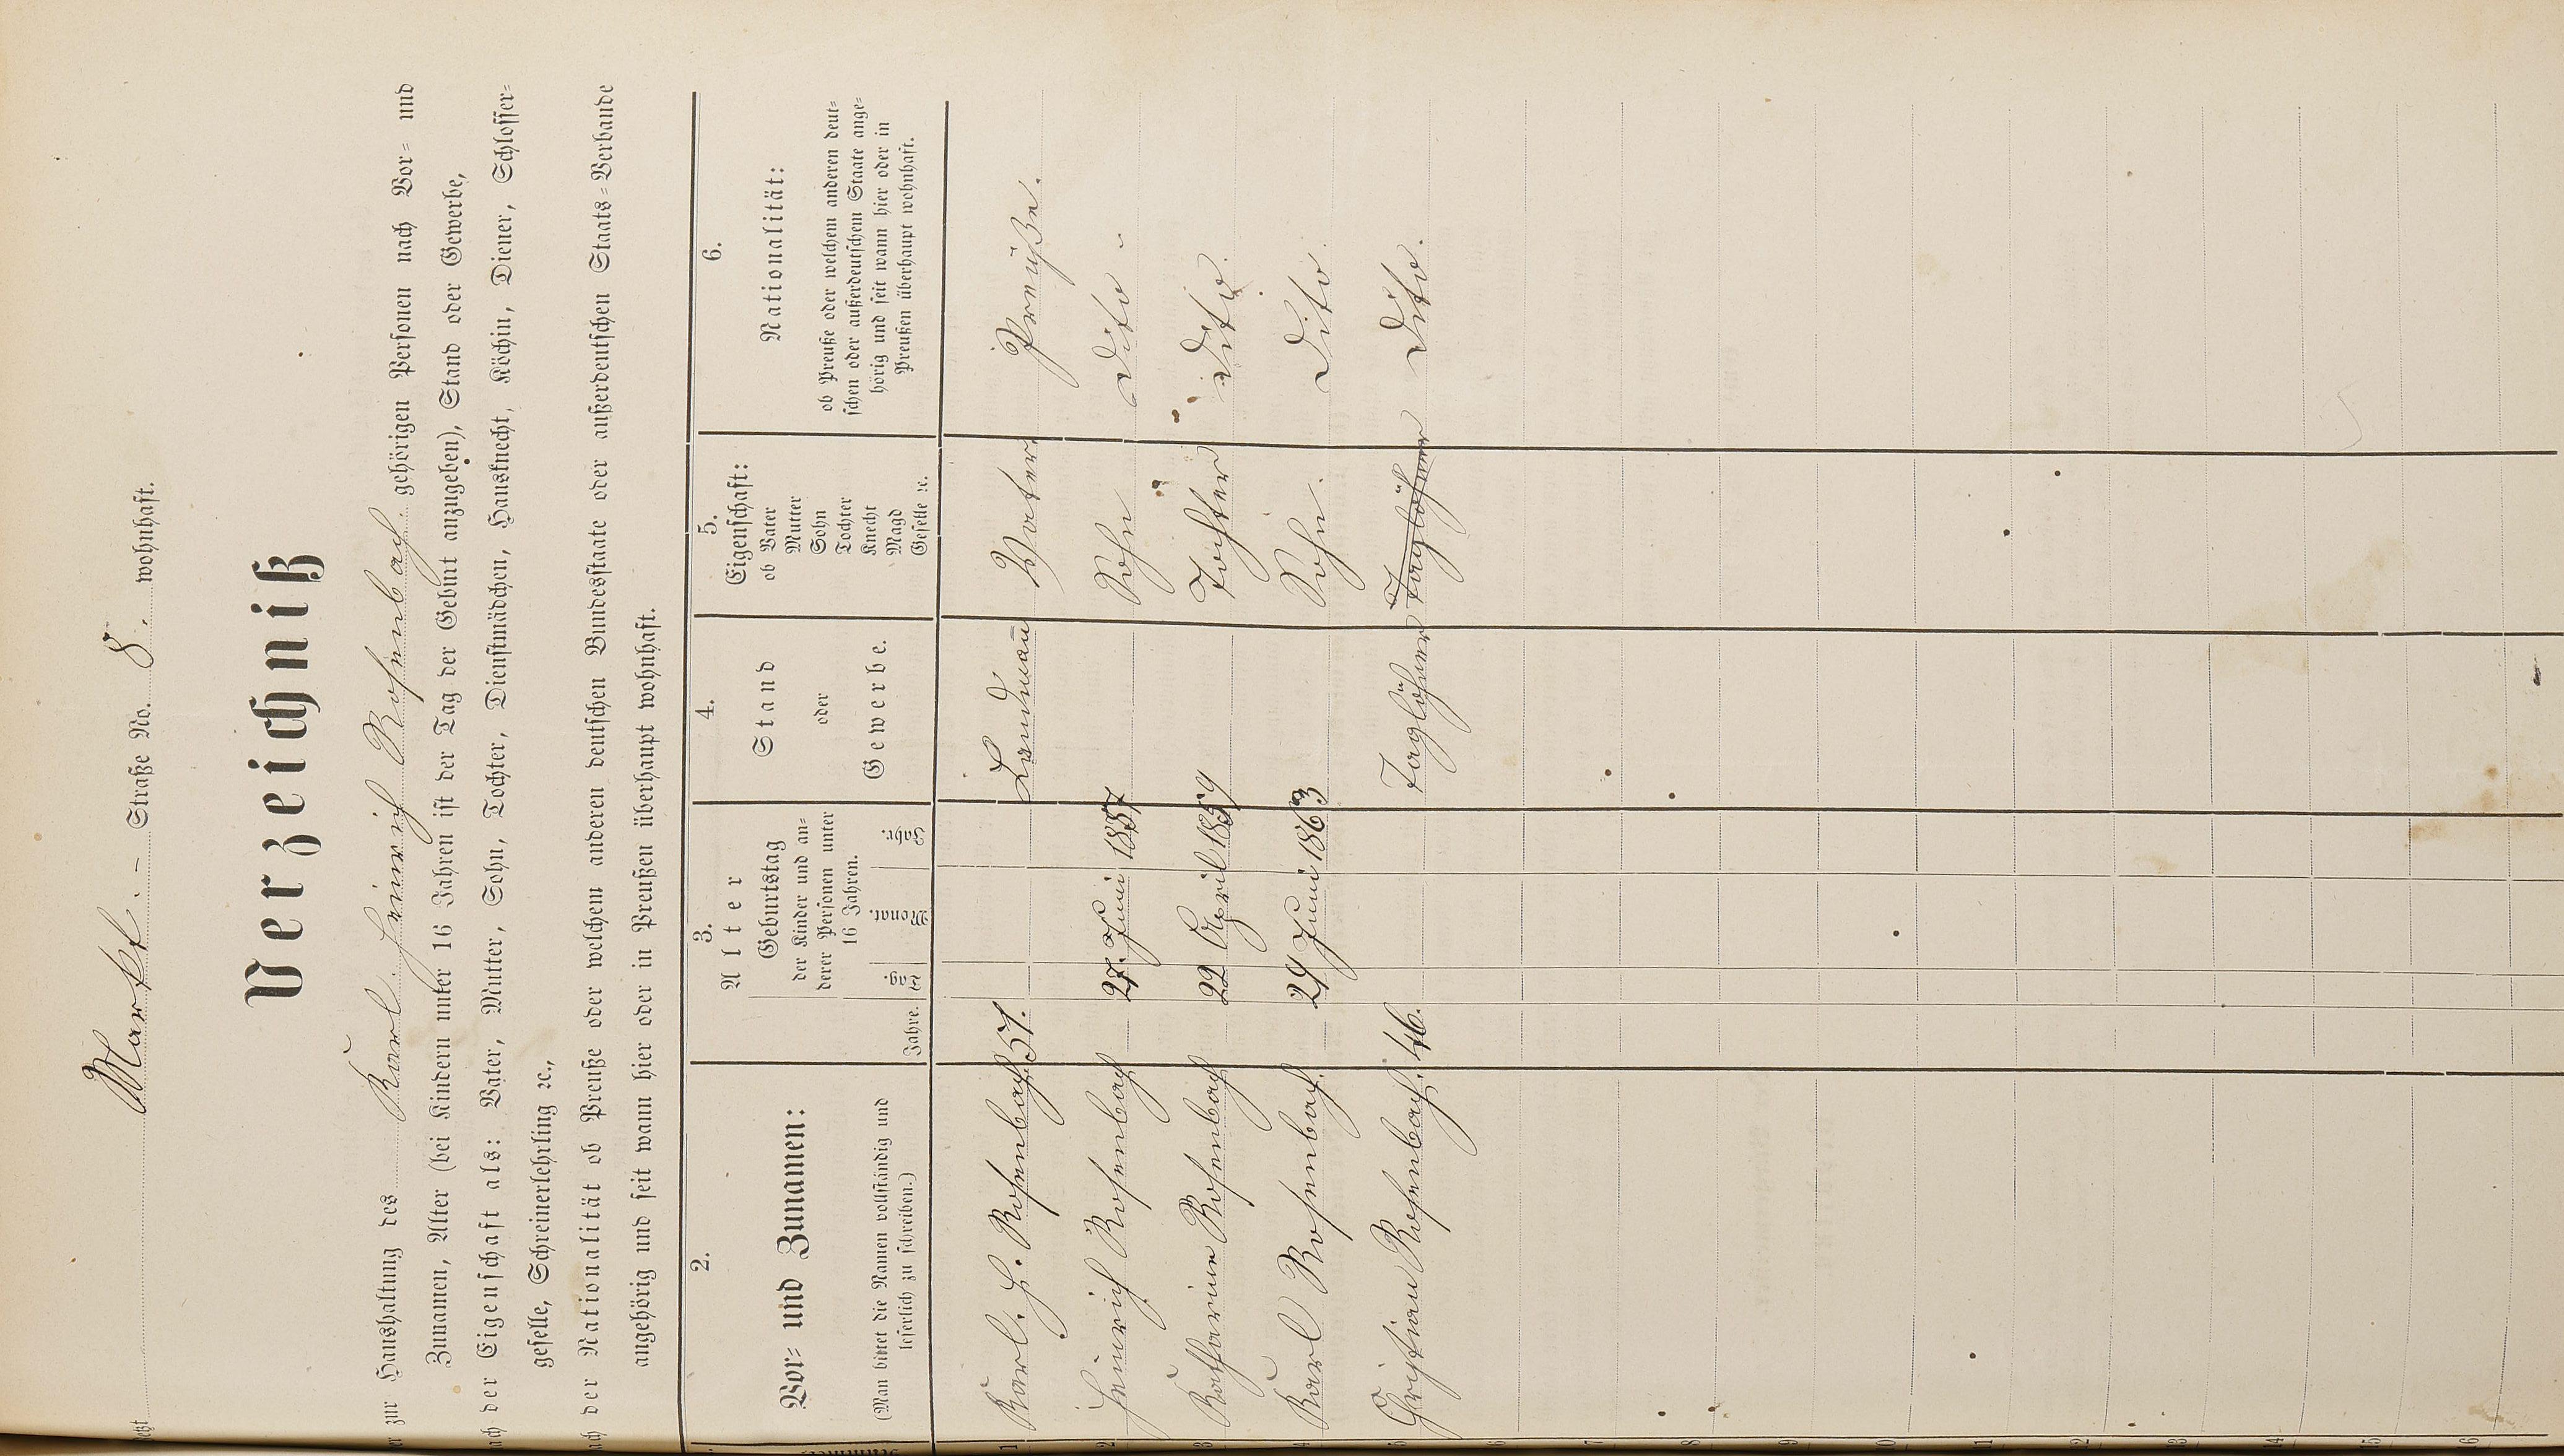 jetzt Markt. – Straße No. 8. wohnhaft.
Verzeichniß
der zur Haushaltung des Karl Heinrich Rosenbach. gehörigen Personen nach Vor- und
Zunamen, Alter (bei Kindern unter 16 Jahren ist der Tag der Geburt anzugeben), Stand oder Gewerbe,
nach der Eigenschaft als: Vater, Mutter, Sohn, Tochter, Dienstmädchen, Hausknecht, Köchin, Diener, Schlosser-
geselle, Schreinerlehrling ꝛc.,
nach der Nationalität ob Preuße oder welchem anderen deutschen Bundesstaate oder außerdeutschen Staats-Verbande
angehörig und seit wann hier oder in Preußen überhaupt wohnhaft.
2. 3. 4. 5. 6.
Vor- und Zunamen:
(Man bittet die Namen vollständig und
leserlich zu schreiben.)
Alter
Jahre.
Geburtstag
der Kinder und an-
derer Personen unter
16 Jahren.
Tag. Monat. Jahr.
Stand
oder
Gewerbe.
Eigenschaft:
ob Vater
Mutter
Sohn
Tochter
Knecht
Magd
Geselle ꝛc.
Nationalität:
ob Preuße oder welchem anderen deut-
schen oder außerdeutschen Staate ange-
hörig und seit wann hier oder in
Preußen überhaupt wohnhaft.
1 Karl. H. Rosenbach 51. Landmann Vater Preuße.
2 Heinrich Rosenbach 27. Juni 1857 Sohn dito.
3 Katharine Rosenbach 22 April 1859 Tochter dito.
4 Karl Rosenbach. 29 Juni 1863 Sohn. dito
5 Christian Rosenbach. 46. Taglöhner Taglöhner dito.
6
7
8
9
10
11
12
13
14
15
16